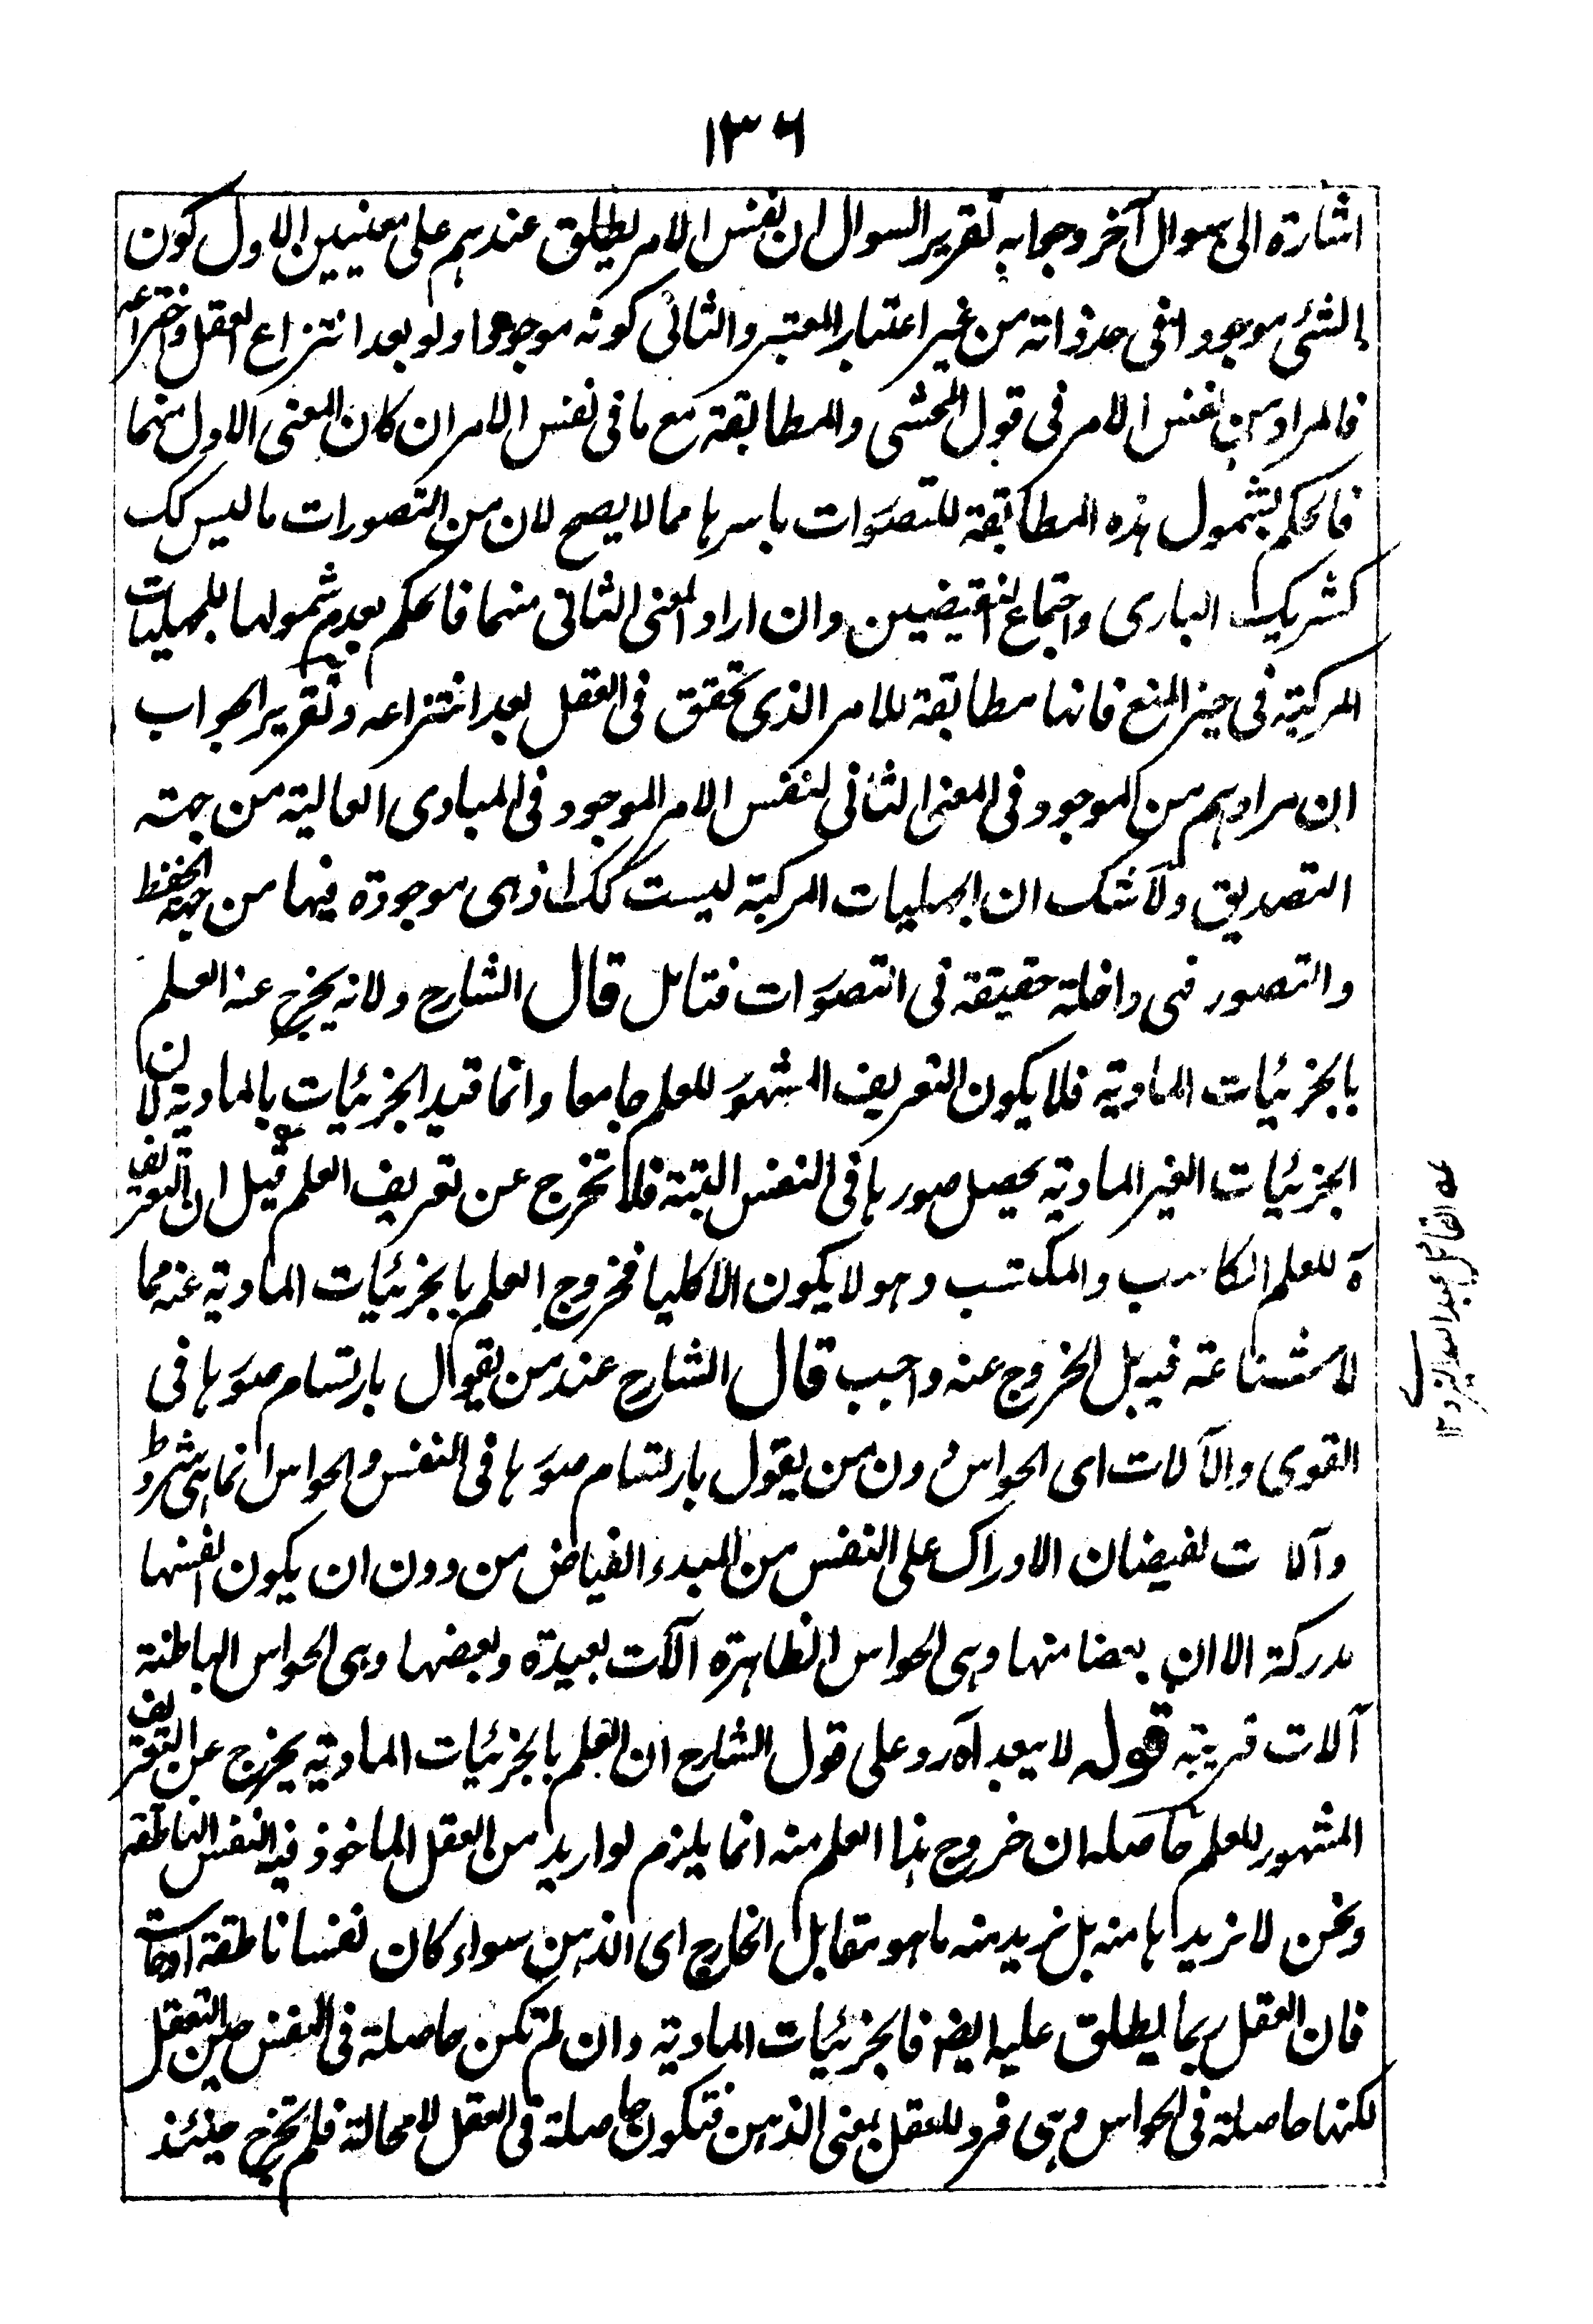 ١٣٦
اشارة الى سوال آخر وجوابه تقرير السوال ان نفس الامر يطلق عندهم على معنيين الاول كون
الشئ موجودا فى حد ذاته من غير اعتبار المعتبر والثانى كونه موجودا ولو بعد انتزاع العقل واختراعه
فالمراد من نفس الامر فى قول المحشى والمطابقة مع ما فى نفس الامر ان كان المعنى الاول منهما
فالحكم بشمول هذه المطابقة للتصورات باسرها مما لا يصح لان من التصورات ما ليس كك
كشريك البارى واجتماع النقيضين وان اراد المعنى الثانى منهما فالحكم بعدم شمولها للجهليات
المركبة فى حيز المنع فانها مطابقة للامر الذى تحقق فى العقل بعد انتزاعه وتقرير الجواب
ان مرادهم من الموجود فى المعنى الثانى لنفس الامر الموجود فى المبادى العالية من جهة
التصديق ولا شك ان الجهليات المركبة ليست كك اذ هى موجودة فيها من جهة الحفظ
والتصور فهى داخلة حقيقة فى التصورات فتامل قال الشارح ولانه يخرج عنه العلم
بالجزئيات المادية فلا يكون التعريف المشهور للعلم جامعا وانما قيد الجزئيات بالمادية لان
الجزئيات الغير المادية يحصل صورها فى النفس البتة فلا تخرج عن تعريف العلم قيل ان التعريف
ه للعلم الكاسب والمكتسب وهو لا يكون الا كليا فخروج العلم بالجزئيات المادية عنه مما
لا شناعة فيه بل الخروج عنه واجب قال الشارح عند من يقول بارتسام صورها فى
القوى والآلات اى الحواس دون من يقول بارتسام صورها فى النفس والحواس انما هى شروط
وآلات لفيضان الادراك على النفس من المبدء الفياض من دون ان يكون انفسها
مدركة الا ان بعضا منها وهى الحواس الظاهرة آلات بعيدة وبعضها وهى الحواس الباطنة
آلات قريبة قوله لا يبعد آه رد على قول الشارح ان العلم بالجزئيات المادية يخرج عن التعريف
المشهور للعلم حاصله ان خروج هذا العلم منه انما يلزم لو اريد من العقل الماخوذ فيه النفس الناطقة
ونحن لا نريدها منه بل نريد منه ما هو مقابل الخارج اى الذهن سواء كان نفسا ناطقة او حاسة
فان العقل ربما يطلق عليه ايضا فالجزئيات المادية وان لم تكن حاصلة فى النفس حين التعقل
لكنها حاصلة فى الحواس وهى فرد للعقل بمعنى الذهن فتكون حاصلة فى العقل لا محالة فلم تخرج حينئذ
عه القائل عبد الله اليزدى ١٢